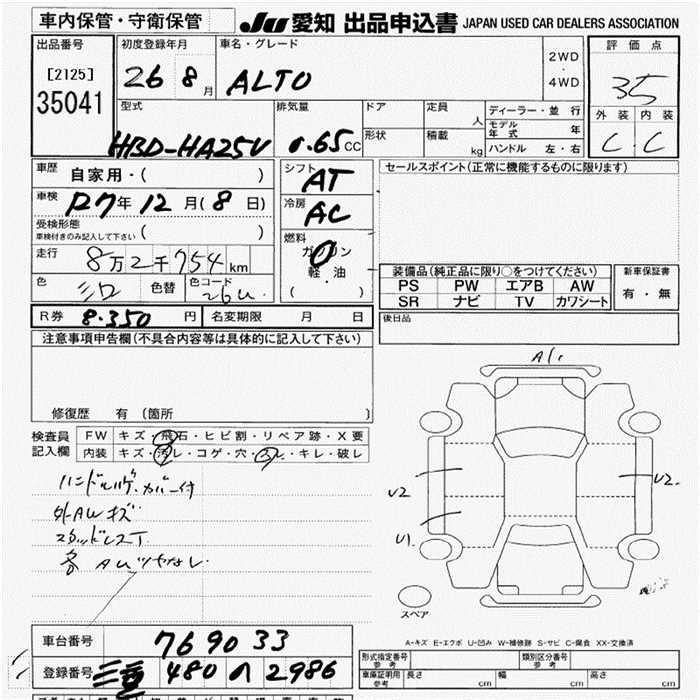 車内保管・守衛保管
JU 愛知 出品申込書 JAPAN USED CAR DEALERS ASSOCIATION
出品番号
[2125]
35041
初度登録年月
26 8 月
車名・グレード
ALTO
2WD
・
4WD
評価点
35
外装 内装
C C
型式
HBD-HA25V
排気量
0.65 CC
ドア
形状
定員 人
積載 kg
ディーラー・並行
モデル年式 年
ハンドル 左・右
車歴
自家用・( )
車検
R7年 12月(8日)
受検形態
車検付きのみ記入して下さい ( )
走行
8万2千754 km
色
シロ
色替
色コード
26U
シフト
AT
冷房
AC
燃料
ガソリン
・
軽油
( )
セールスポイント(正常に機能するものに限ります)
装備品(純正品に限り○をつけてください)
PS PW エアB AW
SR ナビ TV カワシート
新車保証書
有・無
R券 8.350 円
名変期限 月 日
後日品
注意事項申告欄(不具合内容等は具体的に記入して下さい)
修復歴 有 (箇所 )
検査員記入欄
FW キズ・飛石・ヒビ割・リペア跡・X要
内装 キズ・汚レ・コゲ・穴・スレ・キレ・破レ
外AWキズ
A/C
U2
U2
U1
スペア
A-キズ E-エクボ U-凹み W-補修跡 S-サビ C-腐食 XX-交換済
車台番号
769033
登録番号
三重 480 の 2986
形式指定番号
参考
類別区分番号
参考
車庫証明用
参考
長さ cm
幅 cm
高さ cm